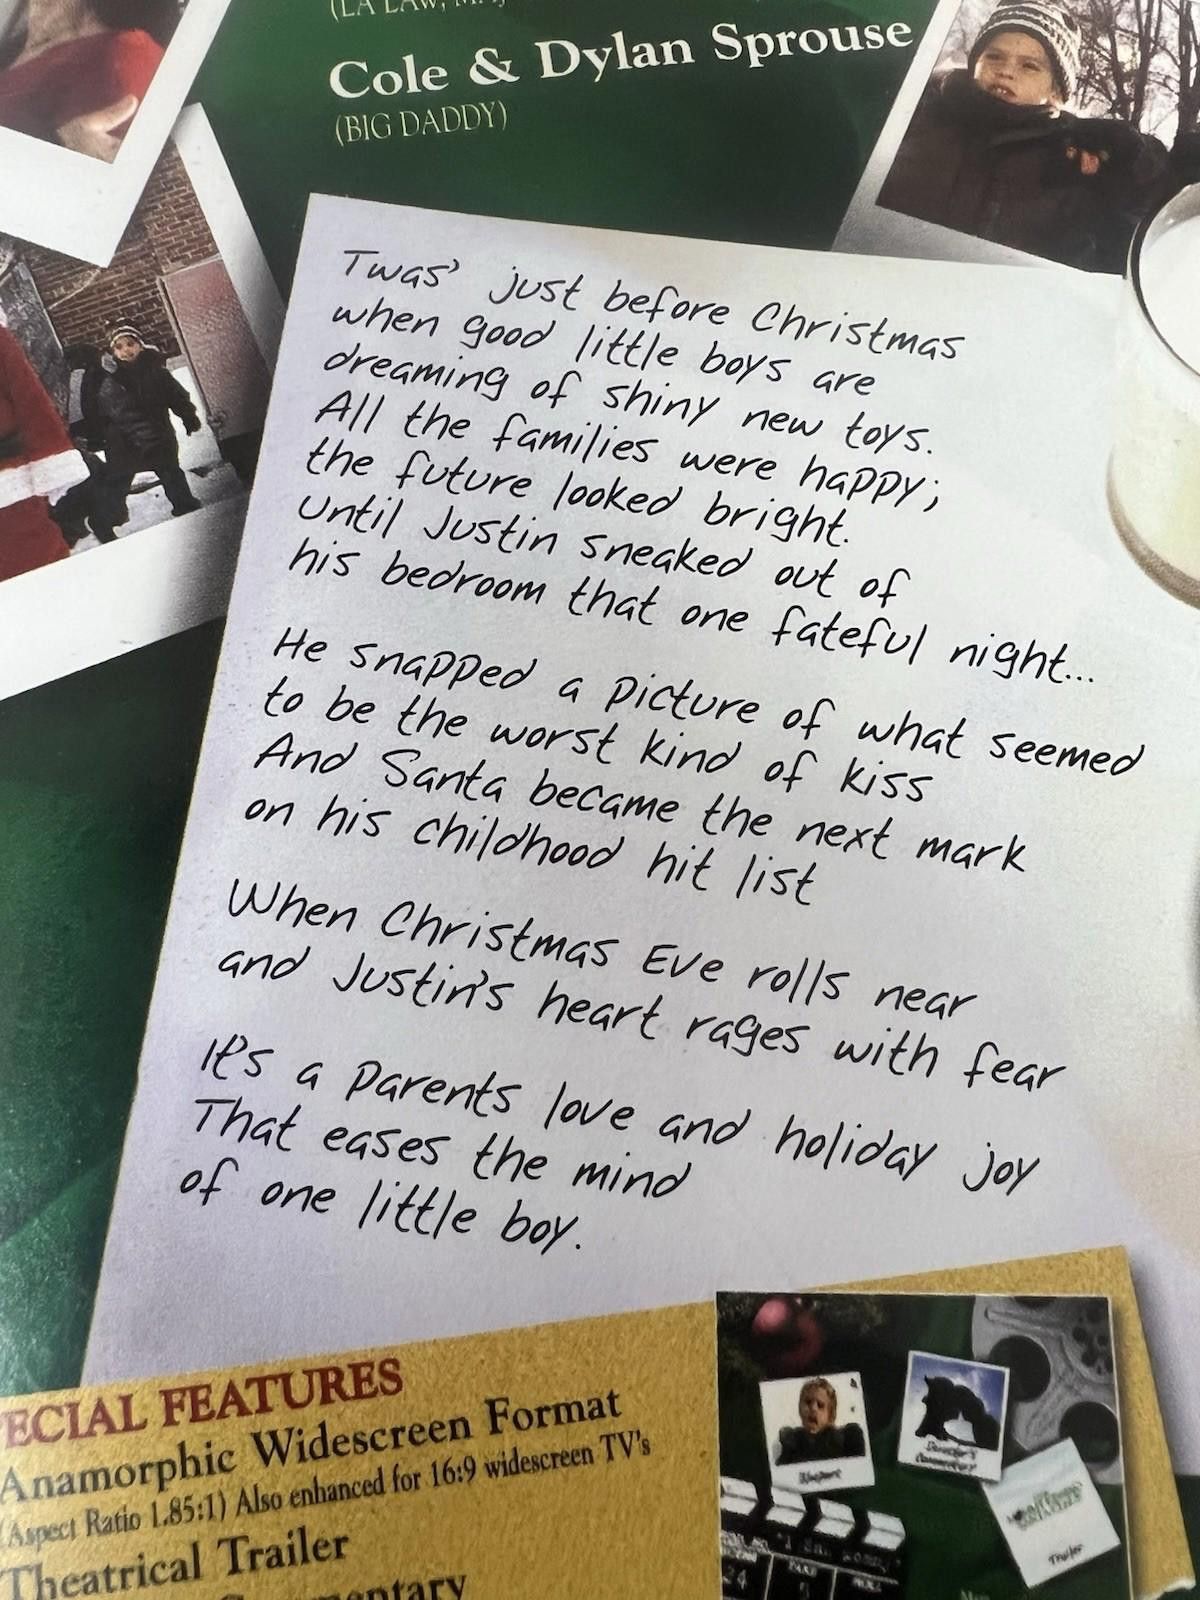 (LA LAW,
Cole & Dylan Sprouse
(BIG DADDY)
Twas' just before Christmas
when good little boys are
dreaming of shiny new toys.
All the families were happy;
the future looked bright.
Until Justin sneaked out of
his bedroom that one fateful night...
He snapped a picture of what seemed
to be the worst kind of kiss
And Santa became the next mark
on his childhood hit list
When Christmas Eve rolls near
and Justin's heart rages with fear
It's a parents love and holiday joy
That eases the mind
of one little boy.
ECIAL FEATURES
Anamorphic Widescreen Format
(Aspect Ratio 1.85:1) Also enhanced for 16:9 widescreen TV's
Theatrical Trailer
mentary
Director's
Commentary
Trailer
24